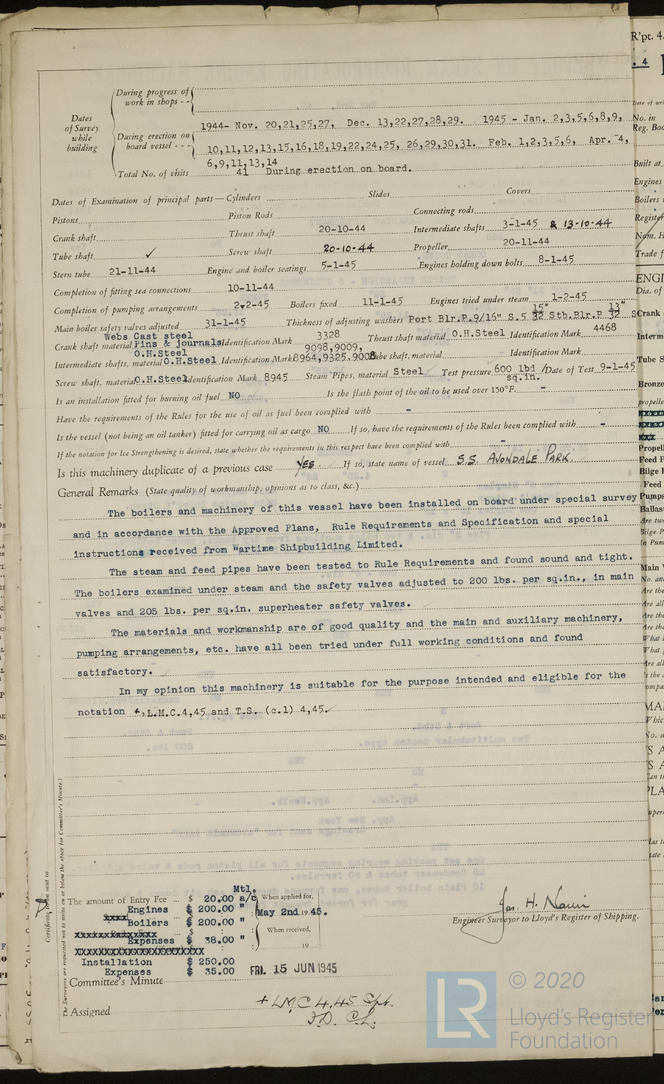 R'pt. 4.
During progress of
work in shops - -
Dates
of Survey
while
building
During erection on
board vessel - - -
1944- Nov. 20,21,25,27, Dec. 13,22,27,28,29. 1945 - Jan. 2,3,5,6,8,9,
10,11,12,13,15,16,18,19,22,24,25, 26,29,30,31. Feb. 1,2,3,5,6, Apr. 4,
6,9,11,13,14
Total No. of visits 41 During erection on board.
Dates of Examination of principal parts—Cylinders Slides Covers
Pistons Piston Rods Connecting rods
Crank shaft Thrust shaft 20-10-44 Intermediate shafts 3-1-45 & 13-10-44
Tube shaft ✓ Screw shaft 20-10-44 Propeller 20-11-44
Stern tube 21-11-44 Engine and boiler seatings 5-1-45 Engines holding down bolts 8-1-45
Completion of fitting sea connections 10-11-44
Completion of pumping arrangements 2-2-45 Boilers fixed 11-1-45 Engines tried under steam 1-2-45
Main boiler safety valves adjusted 31-1-45 Thickness of adjusting washers Port Blr.P.9/16" S.5 15"/32 Stb.Blr.P 13"/32
Webs Cast steel
Crank shaft material Pins & journals Identification Mark 3328 Thrust shaft material O.H.Steel Identification Mark 4468
O.H.Steel 9098,9099,
Intermediate shafts, material O.H.Steel Identification Mark 8964,9325.9008 Tube shaft, material Identification Mark
Screw shaft, material O.H.Steel Identification Mark 8945 Steam Pipes, material Steel Test pressure 600 lbd /sq.in. Date of Test 9-1-45
Is an installation fitted for burning oil fuel NO Is the flash point of the oil to be used over 150°F. -
Have the requirements of the Rules for the use of oil as fuel been complied with -
Is the vessel (not being an oil tanker) fitted for carrying oil as cargo NO If so, have the requirements of the Rules been complied with -
If the notation for Ice Strengthening is desired, state whether the requirements in this respect have been complied with -
Is this machinery duplicate of a previous case YES. If so, state name of vessel S.S. AVONDALE PARK
General Remarks (State quality of workmanship, opinions as to class, &c.)
The boilers and machinery of this vessel have been installed on board under special survey
and in accordance with the Approved Plans, Rule Requirements and Specification and special
instructions received from Wartime Shipbuilding Limited.
The steam and feed pipes have been tested to Rule Requirements and found sound and tight.
The boilers examined under steam and the safety valves adjusted to 200 lbs. per sq.in., in main
valves and 205 lbs. per sq.in. superheater safety valves.
The materials and workmanship are of good quality and the main and auxiliary machinery,
pumping arrangements, etc. have all been tried under full working conditions and found
satisfactory.
In my opinion this machinery is suitable for the purpose intended and eligible for the
notation +,L.M.C.4,45 and T.S. (c.l) 4,45.
Mtl.
The amount of Entry Fee ... $ 20.00 a/c When applied for,
Engines $ 200.00 "
xxxx Boilers $ 200.00 " May 2nd 1945.
xxxxxxxxxxxxxx
Expenses $ 38.00 " When received,
xxxxxxxxxxxxxxxxxxxxxx 19
Installation $ 250.00
Expenses $ 35.00
Engineer Surveyor to Lloyd's Register of Shipping.
Committee's Minute FRI. 15 JUN 1945
Assigned + LMC 4.45
F.D. C.L.
© 2020
LR
Lloyd's Register
Foundation